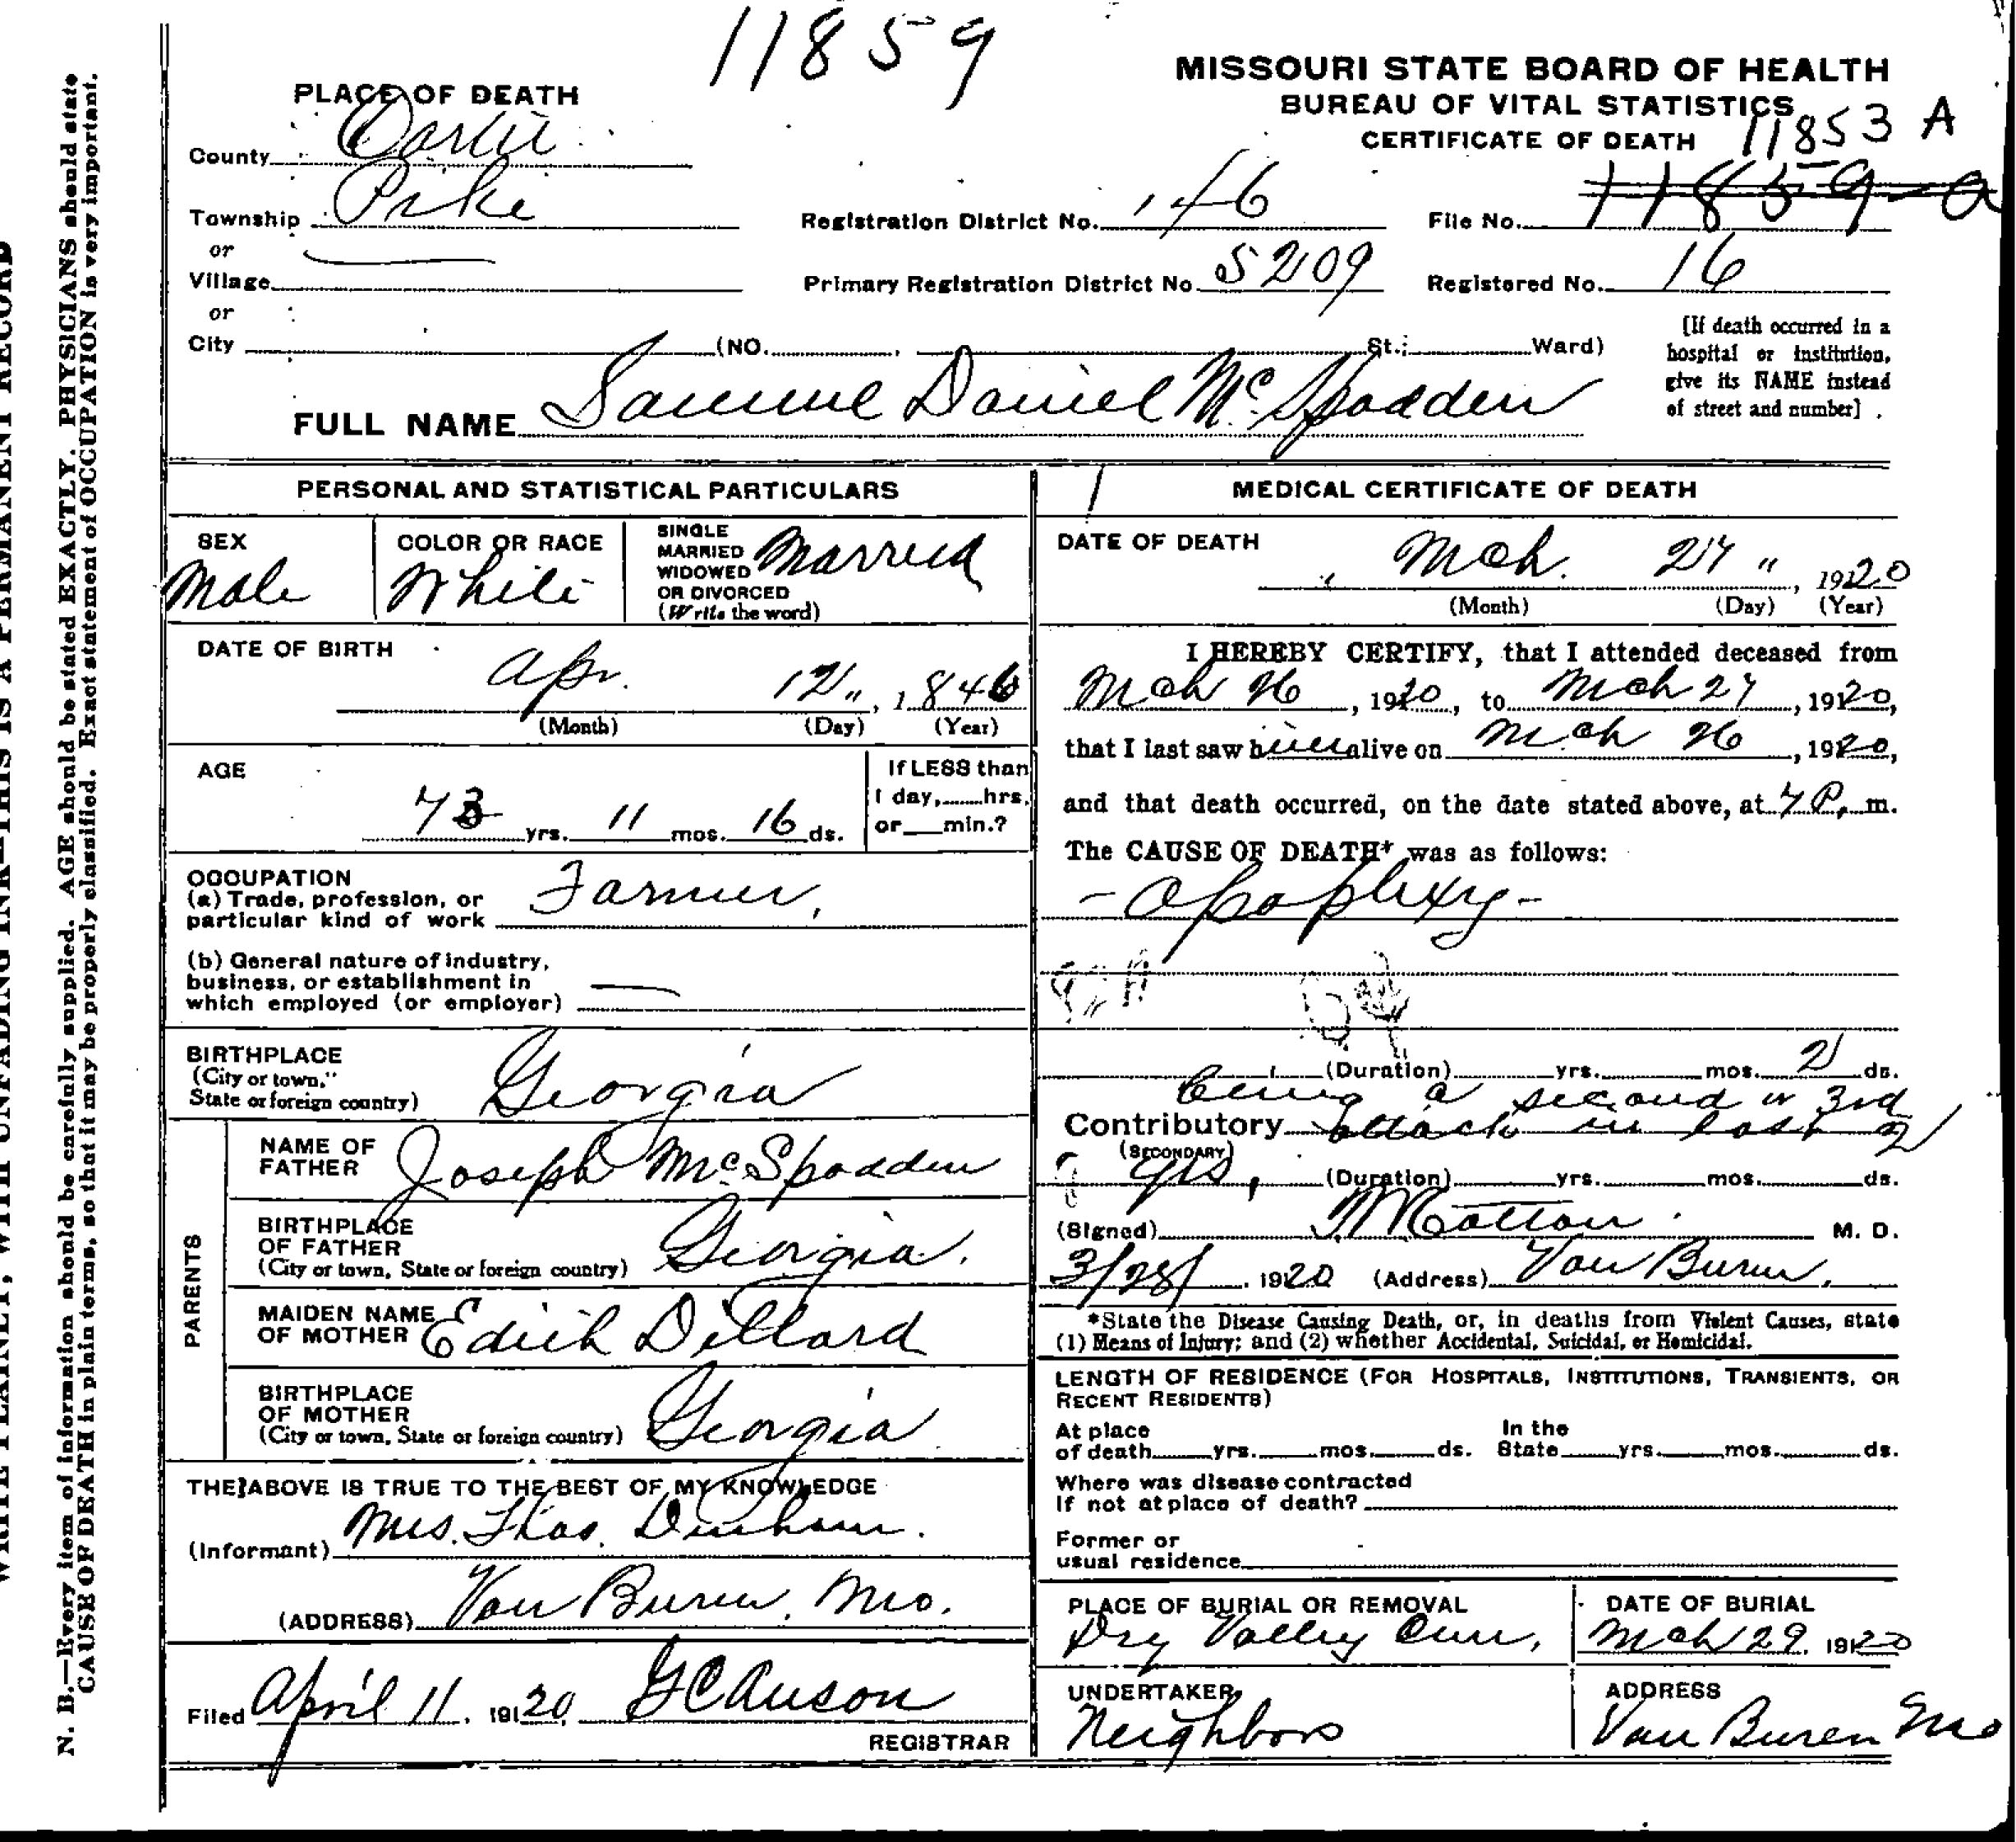 11859
MISSOURI STATE BOARD OF HEALTH
BUREAU OF VITAL STATISTICS
CERTIFICATE OF DEATH
11853 A
PLACE OF DEATH
County Carter
Township Pike
or
Village
or
City (NO. , St.; Ward)
Registration District No. 146
File No. 11859-a
Primary Registration District No. 5209
Registered No. 16
[If death occurred in a
hospital or institution,
give its NAME instead
of street and number] .
FULL NAME Samuel Daniel McSpadden
PERSONAL AND STATISTICAL PARTICULARS
SEX
Male
COLOR OR RACE
White
SINGLE
MARRIED
WIDOWED
OR DIVORCED
(Write the word)
Married
DATE OF BIRTH
Apr. 12", 1846
(Month) (Day) (Year)
AGE
73 yrs. 11 mos. 16 ds.
If LESS than
1 day, hrs.
or min.?
OCCUPATION
(a) Trade, profession, or
particular kind of work Farmer,
(b) General nature of industry,
business, or establishment in
which employed (or employer)
BIRTHPLACE
(City or town,
State or foreign country) Georgia
PARENTS
NAME OF
FATHER Joseph McSpadden
BIRTHPLACE
OF FATHER
(City or town, State or foreign country) Georgia.
MAIDEN NAME
OF MOTHER Edieh Dillard
BIRTHPLACE
OF MOTHER
(City or town, State or foreign country) Georgia
THE ABOVE IS TRUE TO THE BEST OF MY KNOWLEDGE
(Informant) Mrs. Thos.
(ADDRESS) Van Buren, Mo.
Filed April 11, 1920, G C Anson
REGISTRAR
MEDICAL CERTIFICATE OF DEATH
DATE OF DEATH
Mch. 27", 1920
(Month) (Day) (Year)
I HEREBY CERTIFY, that I attended deceased from
Mch 26, 1920, to Mch 27, 1920,
that I last saw him alive on Mch 26, 1920,
and that death occurred, on the date stated above, at 7 P. m.
The CAUSE OF DEATH* was as follows:
- Apoplexy -
(Duration) yrs. mos. 2 ds.
being a second or 3rd
Contributory attack in last 2
(SECONDARY)
yrs, (Duration) yrs. mos. ds.
(Signed) Cotton. M. D.
3/28/ 1920 (Address) Van Buren,
*State the Disease Causing Death, or, in deaths from Violent Causes, state
(1) Means of Injury; and (2) whether Accidental, Suicidal, or Homicidal.
LENGTH OF RESIDENCE (FOR HOSPITALS, INSTITUTIONS, TRANSIENTS, OR
RECENT RESIDENTS)
At place
of death yrs. mos. ds.
In the
State yrs. mos. ds.
Where was disease contracted
If not at place of death?
Former or
usual residence
PLACE OF BURIAL OR REMOVAL
Dry Valley Cem,
DATE OF BURIAL
Mch 29, 1920
UNDERTAKER
Neighbors
ADDRESS
Van Buren Mo
N. B.—Every item of information should be carefully supplied. AGE should be stated EXACTLY. PHYSICIANS should state
CAUSE OF DEATH in plain terms, so that it may be properly classified. Exact statement of OCCUPATION is very important.
WRITE PLAINLY, WITH UNFADING INK—THIS IS A PERMANENT RECORD